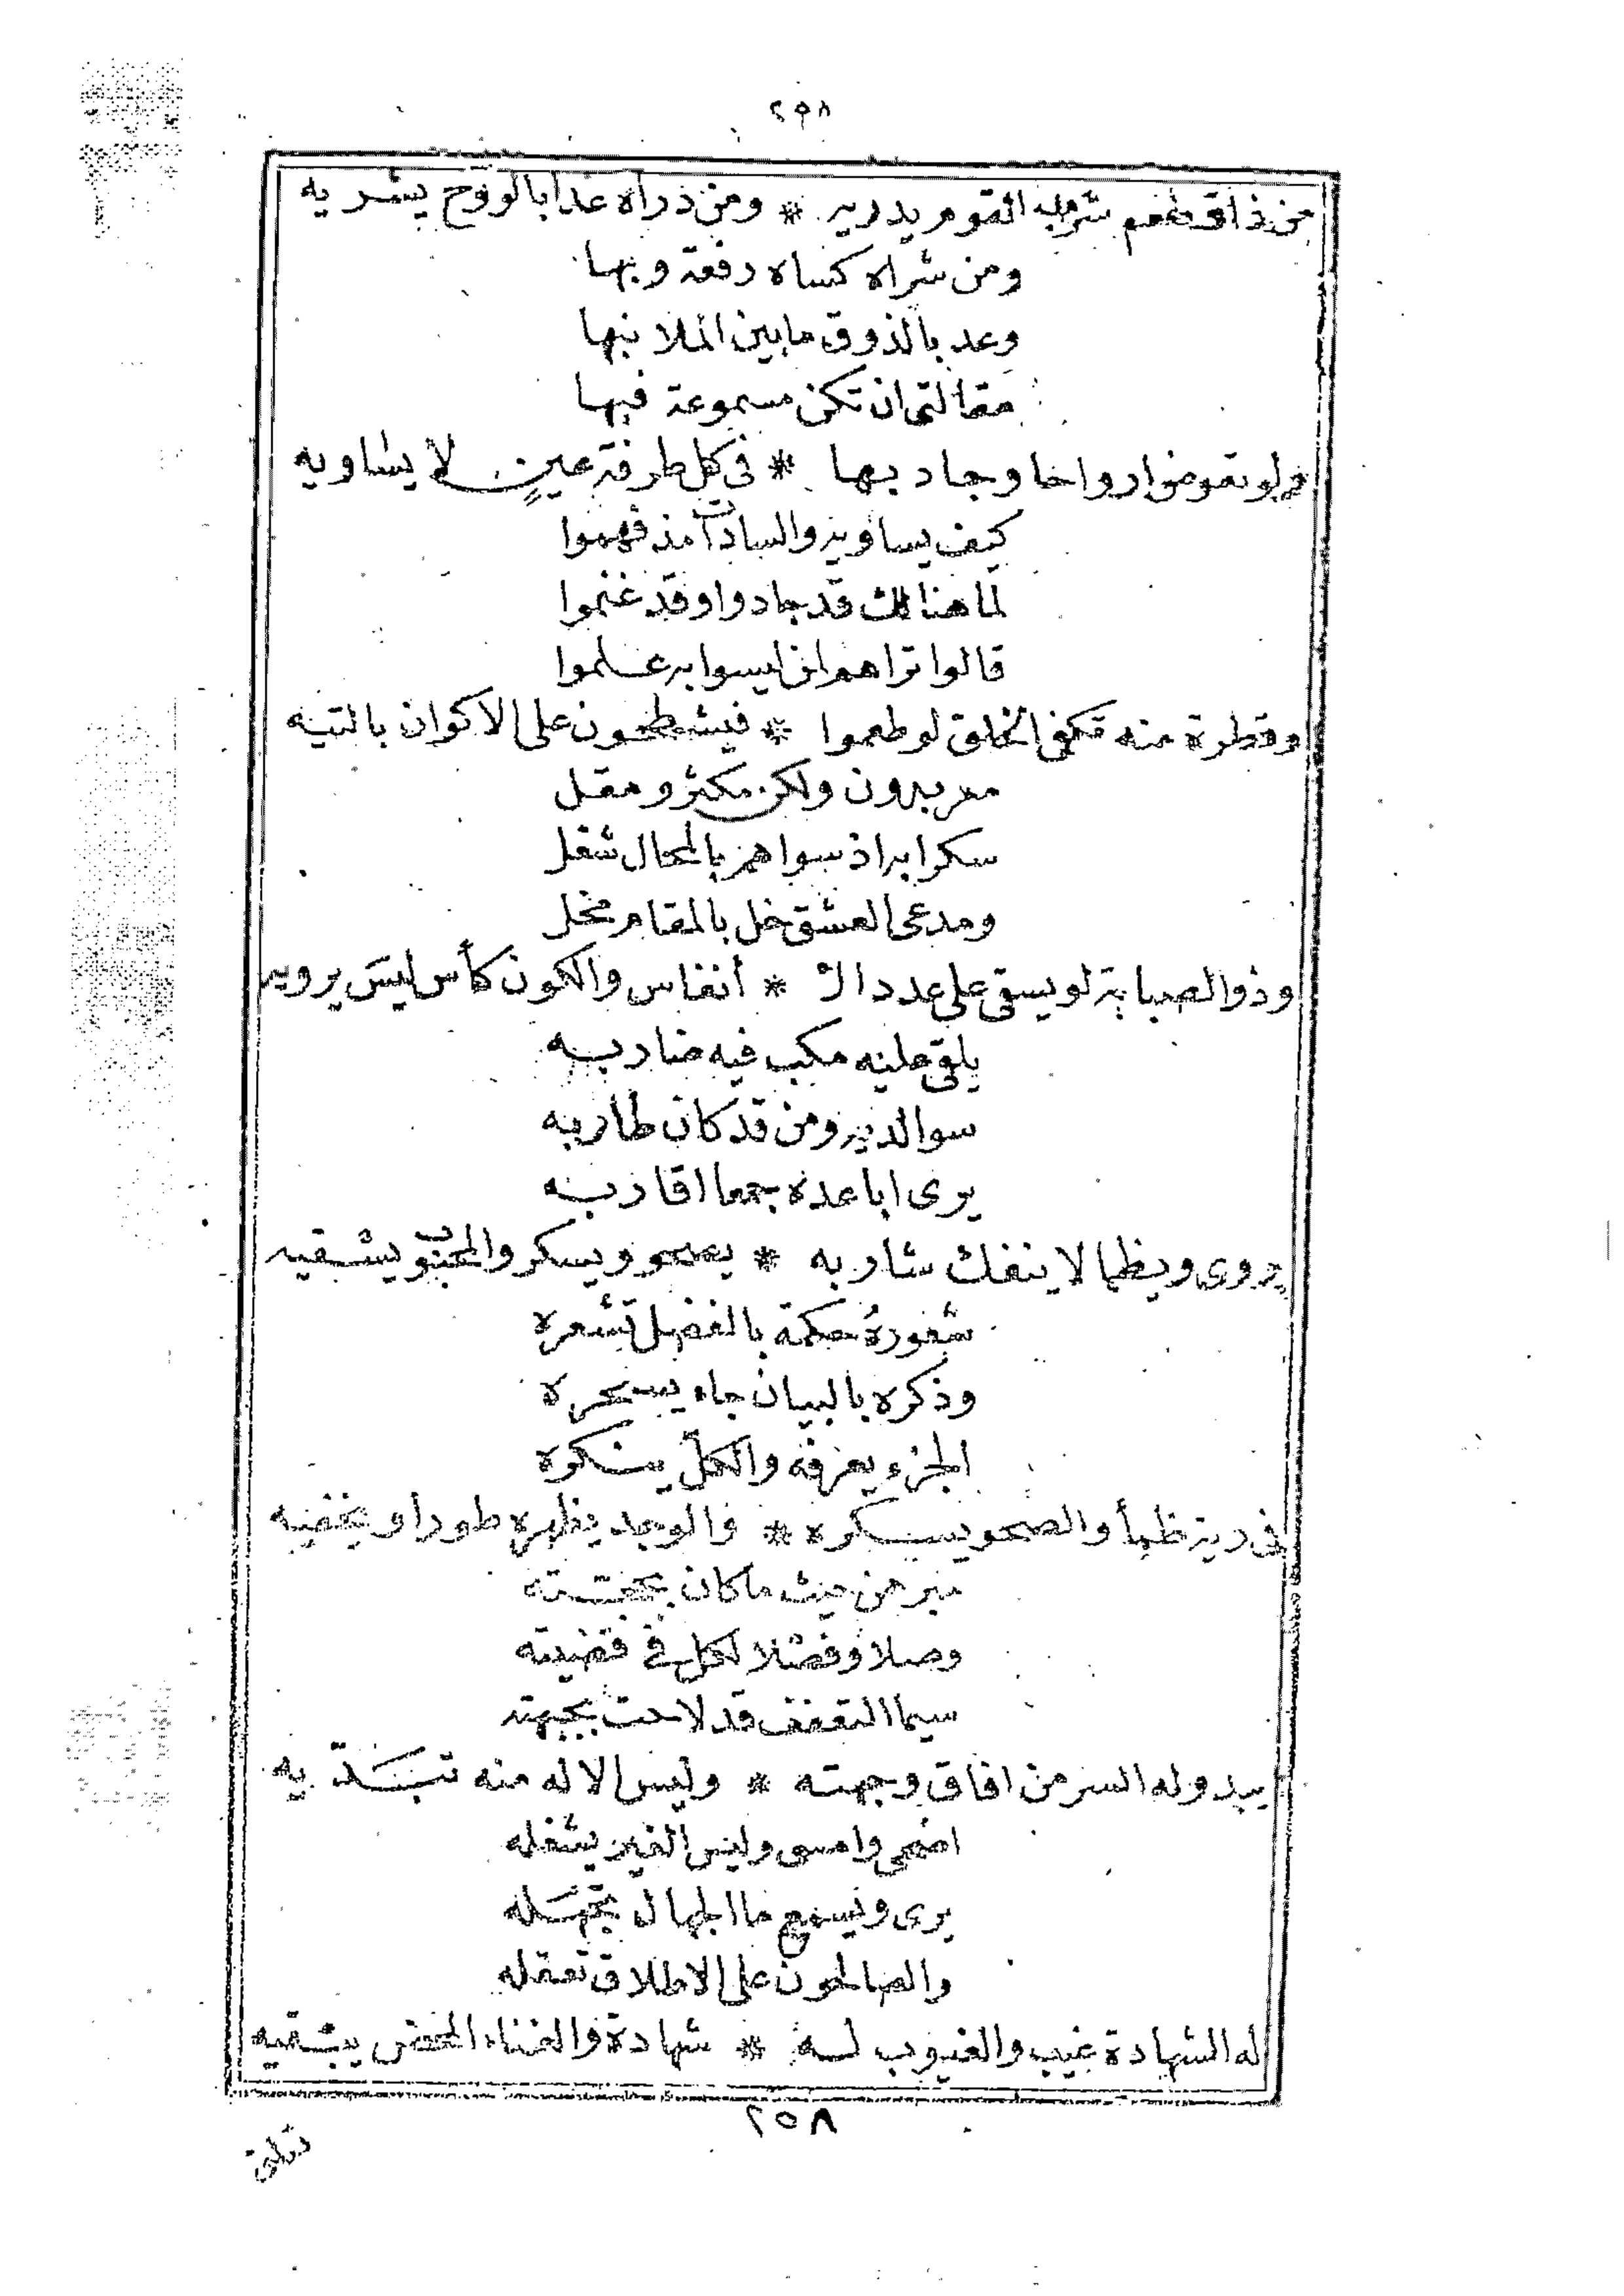 ٢٩٨
من ذاق طعم شراب القوم يدريه * ومن دراه غدا بالروح يشريه
ومن شراه كساه رفعة وبها
وعد بالذوق ما بين الملا نبها
مقالتى ان تكن مسموعة فبها
ولو تعوض ارواحا وجاد بها * فى كل طرفة عين لا يساويه
كيف يساويه والسادات مذ فهموا
لما هنالك قد جادوا وقد غنموا
قالوا تراهم اذا به علموا
وقطرة منه تكفى الخلق لو طعموا * فيشطحون على الاكوان بالتيه
معربدون ولكن مكثر ومقل
سكرا به اذ سواهم بالمحال شغل
ومدعى العشق خل بالمقام مخل
وذو الصبابة لو يسقى على عدد ال * أنفاس والكون كأس ليس يرويه
يلقى عليه مكب فيه ضاربه
سوا لديه ومن قد كان طاربه
يرى اباعده جمعا اقاربه
يروى ويظما لا ينفك شاربه * يصحو ويسكر والمحبوب يسقيه
شعوره حكمة بالفضل تشعره
وذكره بالبيان جاء يسحره
الجزء يعرفه والكل ينكره
فى ريه ظمأ والصحو يسكره * والوجد يظهره طورا ويخفيه
من حيث ما كان بحجته
وصلا وفصلا لكل فى قضيته
سيما التعفف قد لاحت بجبهته
يبدو له السر من افاق وجهته * وليس الا له منه تبديه
اضحى وامسى وليس الغير يشغله
يرى ويسمع ما الجهال تجهله
والصالحون على الاطلاق تعقله
له الشهادة غيب والغيوب له * شهادة والفناء المحض يبقيه
٢٥٨